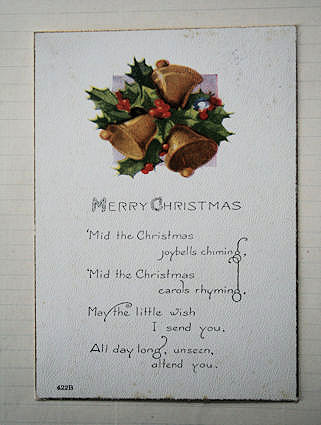 MERRY CHRISTMAS
'Mid the Christmas
joybells chiming,
'Mid the Christmas
carols rhyming,
May the little wish
I send you,
All day long, unseen,
attend you.
422B